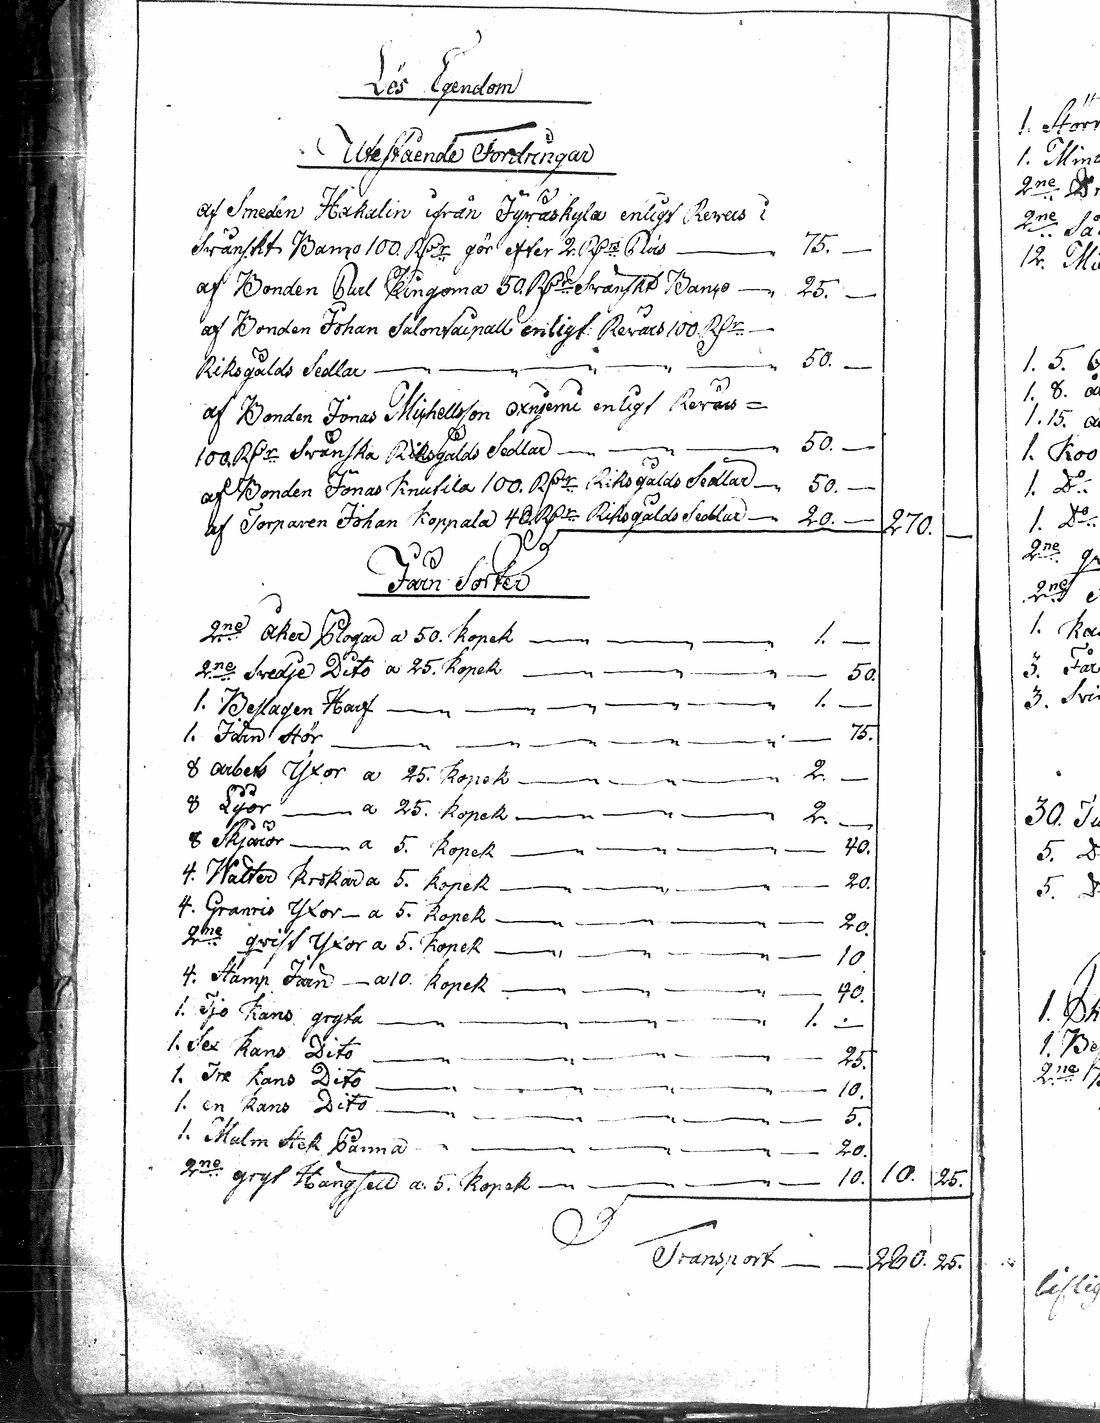 Lös Egendom
Utestående Fordringar
af Smeden Hakalin ifrån Jyväskyla enligt Revers i
Svänskt Banco 100. Rdr gör efter 2. Rdr 75. —
af Bonden Carl Kingoma 50. Rdr Svänskt Banco — 25. —
af Bonden Johan enligt Revärs 100. Rdr —
Riksgälds Sedlar — 50. —
af Bonden Jonas Michellsson enligt Revärs =
100. Rdr Svänska Riksgälds Sedlar — 50. —
af Bonden Jonas Knutila 100. Rdr Riksgälds Sedlar — 50. —
af Torparen Johan Koppala 40. Rdr Riksgälds Sedlar — 20. — 270. —
Järn Sorter
2ne åker Plogar a 50. kopek — 1. —
2ne Svedje Dito a 25. kopek — 50.
1. Beslagen Harf — 1. —
1. Järn Stör — 75.
8 arbets Yxor a 25. kopek — 2. —
8 Lijor — a 25. kopek — 2. —
8 Skjäror — a 5. kopek — 40.
4. Watten krokar a 5. kopek — 20.
4. Granris Yxor — a 5. kopek — 20.
2ne qvist Yxor a 5. kopek — 10
4. Stamp Järn — a 10. kopek — 40.
1. Tjo kans gryta — 1. —
1. Sex kans Dito — 25.
1. Tre kans Dito — 10.
1. en kans Dito — 5.
1. Malm Stek Panna 20.
2ne gryt a. 5. kopek — 10. 10. 25.
Transport — 280. 25.
1.
1.
2ne
2ne
12.
1. 5.
1. 8.
1. 15.
1. Koo
1. Do
1. Do
2ne
2ne
1.
3.
3.
30.
5.
5.
1.
1.
2ne